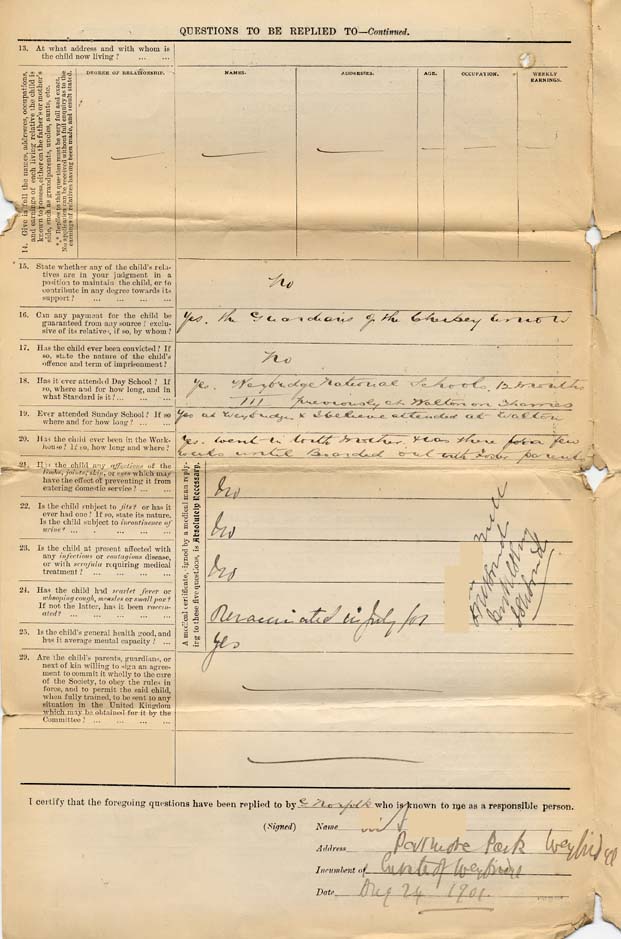 QUESTIONS TO BE REPLIED TO—Continued.
13. At what address and with whom is
the child now living? ... ...
14. Give in full the names, addresses, occupations,
and earnings of each living relative the child is
known to possess, either on the father's or mother's
side, such as grandparents, uncles, aunts, etc.
*** Replies to this question must be very full and exact.
No application can be received without full enquiry as to the
earnings of relatives having been made, and result stated.
DEGREE OF RELATIONSHIP.
NAMES.
ADDRESSES.
AGE.
OCCUPATION.
WEEKLY
EARNINGS.
15. State whether any of the child's rela-
tives are in your judgment in a
position to maintain the child, or to
contribute in any degree towards its
support? ... ... ... ...
No
16. Can any payment for the child be
guaranteed from any source? exclu-
sive of its relatives, if so, by whom?
Yes. The Guardians of the Chertsey Union
17. Has the child ever been convicted? If
so, state the nature of the child's
offence and term of imprisonment?
No
18. Has it ever attended Day School? If
so, where and for how long, and in
what Standard is it? ... ... ...
Yes. Weybridge National Schools. 12 months
III previously at Walton on Thames
19. Ever attended Sunday School? If so
where and for how long? ... ...
Yes at Weybridge & I believe attended at Walton
20. Has the child ever been in the Work-
house? If so, how long and where?
Yes. went in with Mother & was there for a few
weeks until Boarded out with Foster parents
A medical certificate, signed by a medical man reply-
ing to these five questions, is Absolutely Necessary.
21. Has the child any affections of the
limbs, joints, skin, or eyes which may
have the effect of preventing it from
entering domestic service? ... ...
No
22. Is the child subject to fits? or has it
ever had one? If so, state its nature.
Is the child subject to incontinence of
urine? ... ... ... ...
No
23. Is the child at present affected with
any infectious or contagious disease,
or with scrofula requiring medical
treatment? ... ... ... ...
No
24. Has the child had scarlet fever or
whooping cough, measles or small pox?
If not the latter, has it been vaccin-
ated? ... ... ... ... ...
Revaccinated in July /01
25. Is the child's general health good, and
has it average mental capacity? ...
Yes
29. Are the child's parents, guardians, or
next of kin willing to sign an agree-
ment to commit it wholly to the care
of the Society, to obey the rules in
force, and to permit the said child,
when fully trained, to be sent to any
situation in the United Kingdom
which may be obtained for it by the
Committee? ... ... ... ...
I certify that the foregoing questions have been replied to by C Norfolk who is known to me as a responsible person.
(Signed) Name
Address Portmore Park Weybridge
Incumbent of Curate of Weybridge
Date Aug 24 1901